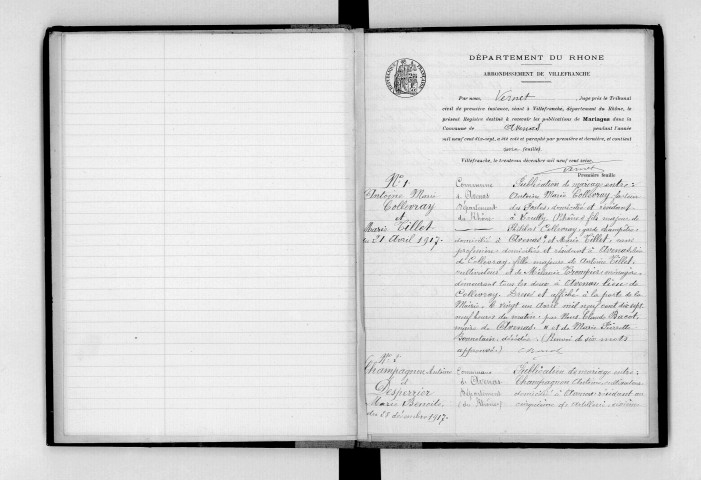 DÉPARTEMENT DU RHONE
ARRONDISSEMENT DE VILLEFRANCHE
Par nous, Vernet, Juge près le Tribunal
civil de première instance, séant à Villefranche, département du Rhône, le
présent Registre destiné à recevoir les publications de Mariages dans la
Commune de Avenas pendant l'année
mil neuf cent dix-sept, a été coté et paraphé par première et dernière, et contient
feuillets.
Villefranche, le trente un décembre mil neuf cent seize.
Vernet
Première feuille
N° 1
Antoine Marie
Collevray
et
Marie Tillet
du 21 Avril 1917.
Commune
d'Avenas
Département
du Rhône
Publication de mariage entre :
Antoine Marie Collevray facteur
des Postes domicilié et résidant
à (Rhône) fils majeur de
Collevray, garde champêtre
domicilié à Avenas et Marie Tillet, sans
profession domiciliée et résidant à Avenas
de Collevray, fille majeure de Antoine Tillet
cultivateur et de ménagère
demeurant tous les deux à Avenas lieu de
Collevray. Dressé et affiché à la porte de la
Mairie, le vingt un Avril mil neuf cent dix sept
neuf heures du matin, par Nous Claude Bacot
maire de Avenas. et de Marie Pierrette
décédée (Renvoi de six mots
approuvé)
Bacot
Champagnon Antoine
et
Desperrier
Marie Benoite
du 23 décembre 1917.
Commune
de Avenas
Département
(du Rhône)
Publication de mariage entre :
Champagnon cultivateur
domicilié à Avenas résidant au